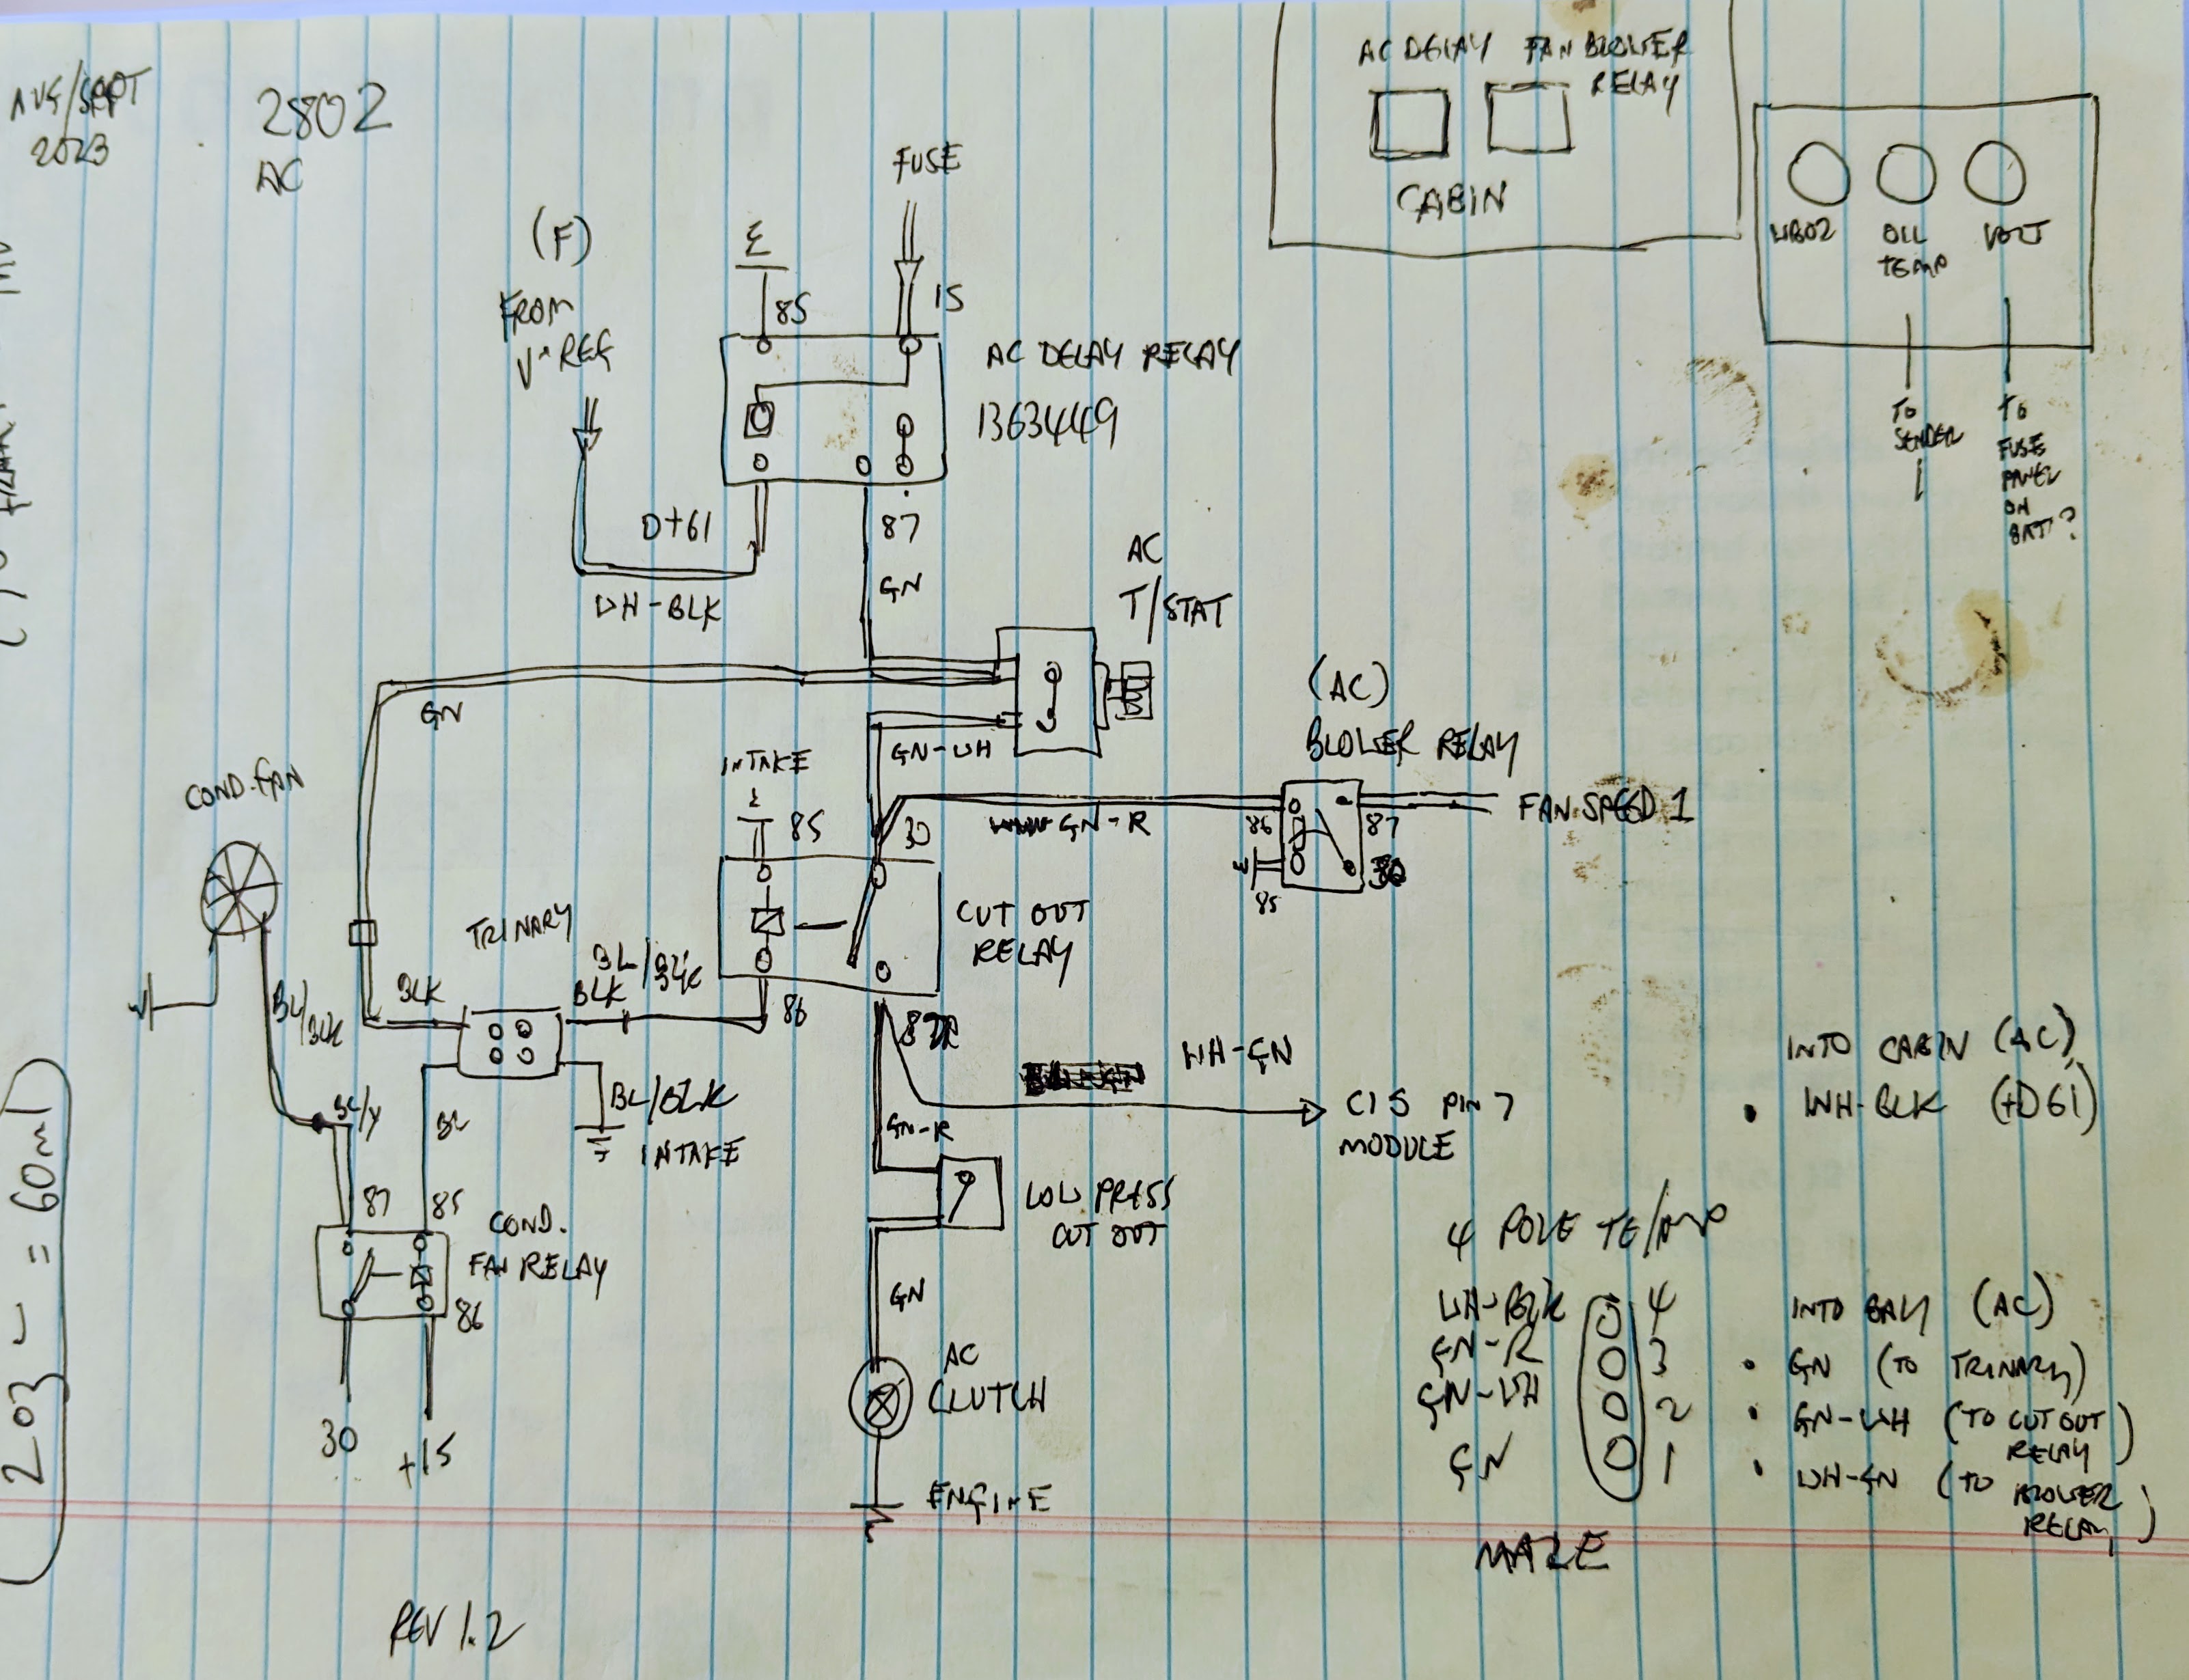 AUG/SEPT
2023
2802
AC
AC DELAY
FAN BLOWER
RELAY
CABIN
WBO2
OIL
TEMP
VOLT
TO
SENDER
TO
FUSE
PANEL
ON
BATT?
FUSE
(F)
FROM
V-REG
E
85
15
AC DELAY RELAY
1363449
D+61
WH-BLK
87
GN
AC
T/STAT
GN
GN-WH
INTAKE
E
85
30
GN-R
(AC)
BLOWER RELAY
86
87
85
30
FAN SPEED 1
COND. FAN
TRINARY
CUT OUT
RELAY
BL/BLK
BLK
BLK
BL/BLK
86
87A
WH-GN
CIS PIN 7
MODULE
BL/Y
BL
BL/BLK
INTAKE
GN-R
LOW PRESS
CUT OUT
87
85
COND.
FAN RELAY
86
30
+15
GN
AC
CLUTCH
ENGINE
INTO CABIN (AC)
• WH-BLK (+D61)
4 POLE TE/AMP
WH-BLK 4
GN-R 3
GN-WH 2
GN 1
MALE
INTO BAY (AC)
• GN (TO TRINARY)
• GN-WH (TO CUT OUT
RELAY)
• WH-GN (TO BLOWER
RELAY)
203 - = 60ml
REV 1.2